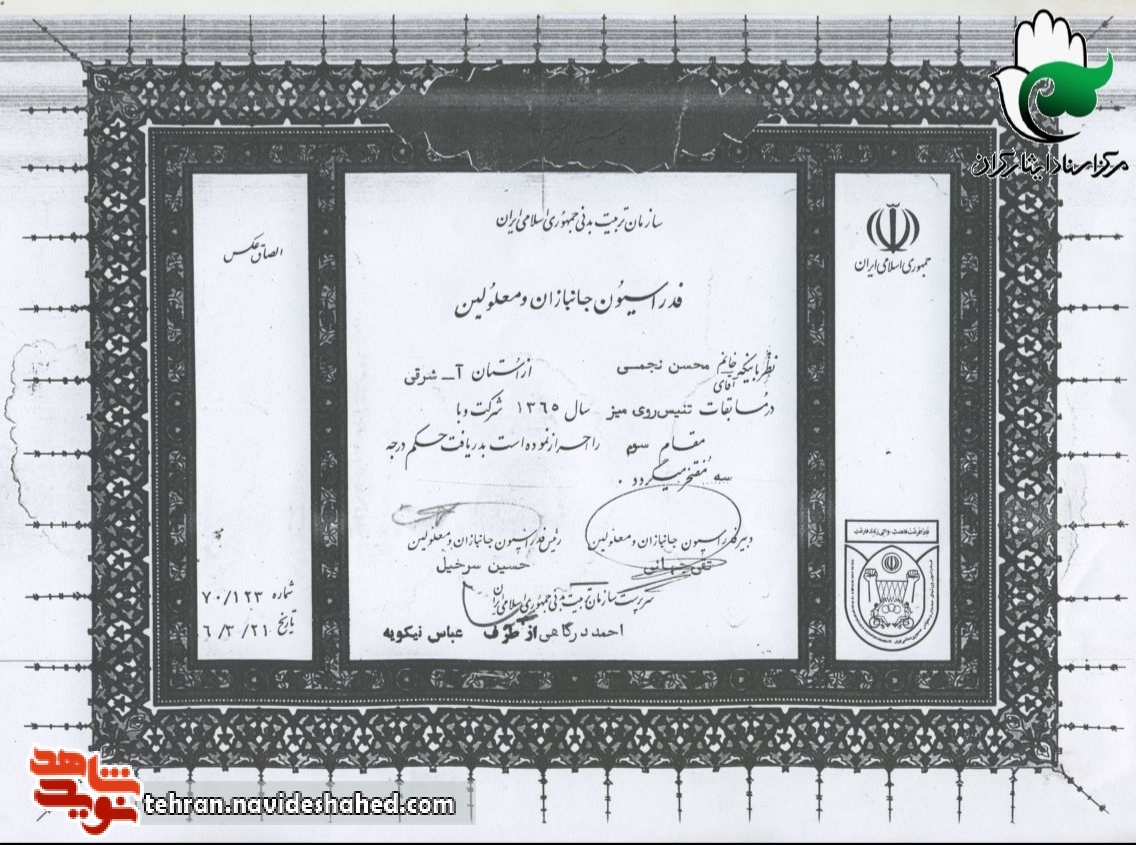 مرکز اسناد ایثارگران
جمهوری اسلامی ایران
سازمان تربیت بدنی جمهوری اسلامی ایران
فدراسیون جانبازان و معلولین
نظر باینکه خانم آقای محسن نجمی از استان آ ــ شرقی
در مسابقات تنیس روی میز سال ۱۳٦۵ شرکت و با
مقام سوم را احراز نموده است بدریافت حکم درجه
سه مفتخر میگردد .
دبیر فدراسیون جانبازان و معلولین
تقی جهانی
رئیس فدراسیون جانبازان و معلولین
حسین سرخیل
سرپرست سازمان تربیت بدنی جمهوری اسلامی ایران
احمد درگاهی از طرف عباس نیکویه
الصاق عکس
شماره ۷۰/۱۲۳
تاریخ ٦/۳/۲۱
نوید شاهد
tehran.navideshahed.com